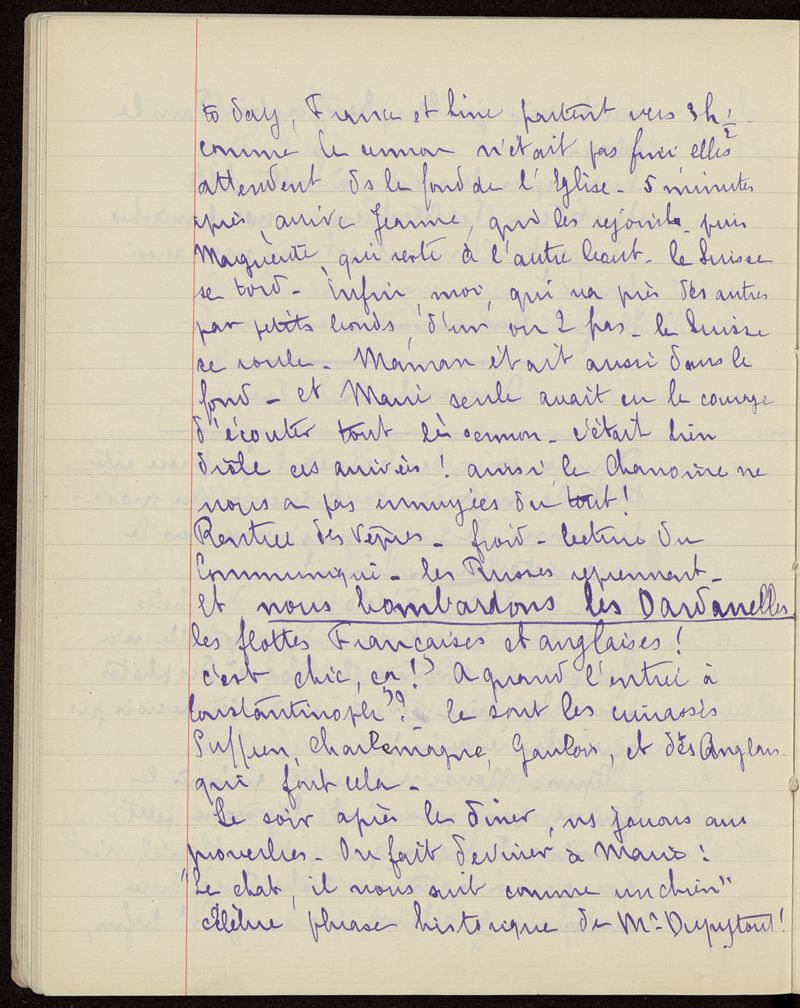 to day, France et Line partent vers 3h 1/2
comme le sermon n'était pas fini elles
attendent ds le fond de l'Eglise - 5 minutes
après arrive Jeanne, qui les rejoint - puis
Marguerite qui reste à l'autre bout - le Suisse
se tord - Enfin, moi, qui va près des autres
par petits bonds, d'un ou 2 pas - le Suisse
se roule - Maman était aussi dans le
fond - et Marie seule avait eu le courage
d'écouter tout le sermon - c'était bien
drôle ces arrivées ! aussi le Chanoine ne
nous a pas ennuyées du tout !
Rentrée des Vêpres - froid - lecture du
Communiqué - les Russes reprennent -
Et nous bombardons les Dardanelles,
les flottes Françaises et anglaises !
c'est chic, ça !? A quand l'entrée à
Constantinople ?? Ce sont les cuirassés
Suffren, Charlemagne, Gaulois, et des Anglais
qui font cela -
Le soir après le dîner, ns jouons aux
proverbes - On fait deviner à Marie :
"Le chat, il nous suit comme un chien"
célèbre phrase historique de Mr Dupytout !